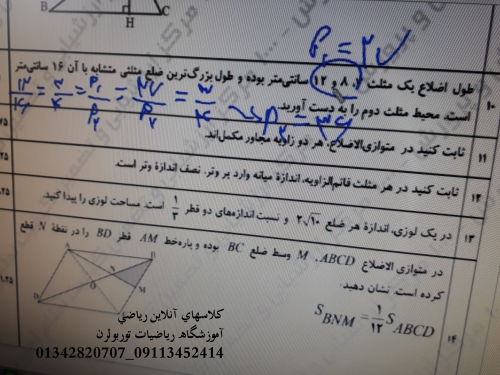 B H C
P₁ = ۲۷
۱۰ طول اضلاع یک مثلث ۸ و ۱۲ سانتی‌متر بوده و طول بزرگ‌ترین ضلع مثلثی متشابه با آن ۱۶ سانتی‌متر
است. محیط مثلث دوم را به دست آورید.
= ۳/۴ = P₁/P₂ = ۲۷/P₂ = ۳/۴ → P₂ = ۳۶
۱۱ ثابت کنید در متوازی‌الاضلاع، هر دو زاویه مجاور مکمل‌اند.
۱۲ ثابت کنید در هر مثلث قائم‌الزاویه، اندازهٔ میانه وارد بر وتر، نصف اندازهٔ وتر است.
۱۳ در یک لوزی، اندازهٔ هر ضلع ۲√۱۰ و نسبت اندازه‌های دو قطر ۱/۳ است. مساحت لوزی را پیدا کنید.
۱۴ در متوازی الاضلاع ABCD، M وسط ضلع BC بوده و پاره‌خط AM قطر BD را در نقطهٔ N قطع
کرده است. نشان دهید.
S BNM = ۱/۱۲ S ABCD
A B
N
M
O
D
۱.۲۵
کلاسهای آنلاین ریاضی
آموزشگاه ریاضیات توربولرن
09113452414_01342820707